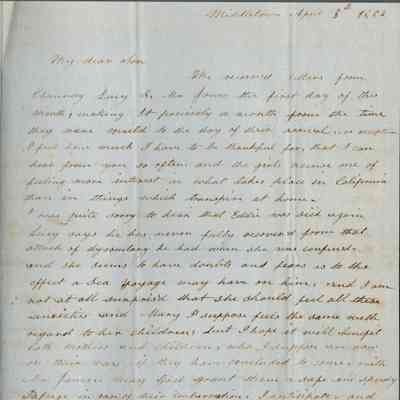 Middletown April 3d 1854
My dear son
We received letters from
Chauncey Lucy & Mr Jones the first day of this
month, making it precisely a month from the time
they were mail'd to the day of their
I feel how much I have to be thankful for, that I can
hear from you so often and the girls accuse me of
feeling more interest in what takes place in California
than in things which transpire at home.
I was quite sorry to hear that Eddie was sick again
Lucy says he has never fully recovered from that
attack of dysentary he had when she was confined,
and she seems to have doubts and fears as to the
effect a Sea voyage may have on him, and I am
not at all surprised that she should feel all these
anxieties and Mary I suppose feels the same with
regard to her children, but I hope it will benefit
both mothers and children, who I suppose are now
on their way if they have concluded to come with
Mr Jones. May God grant them a safe and speedy
passage in their I anticipate and